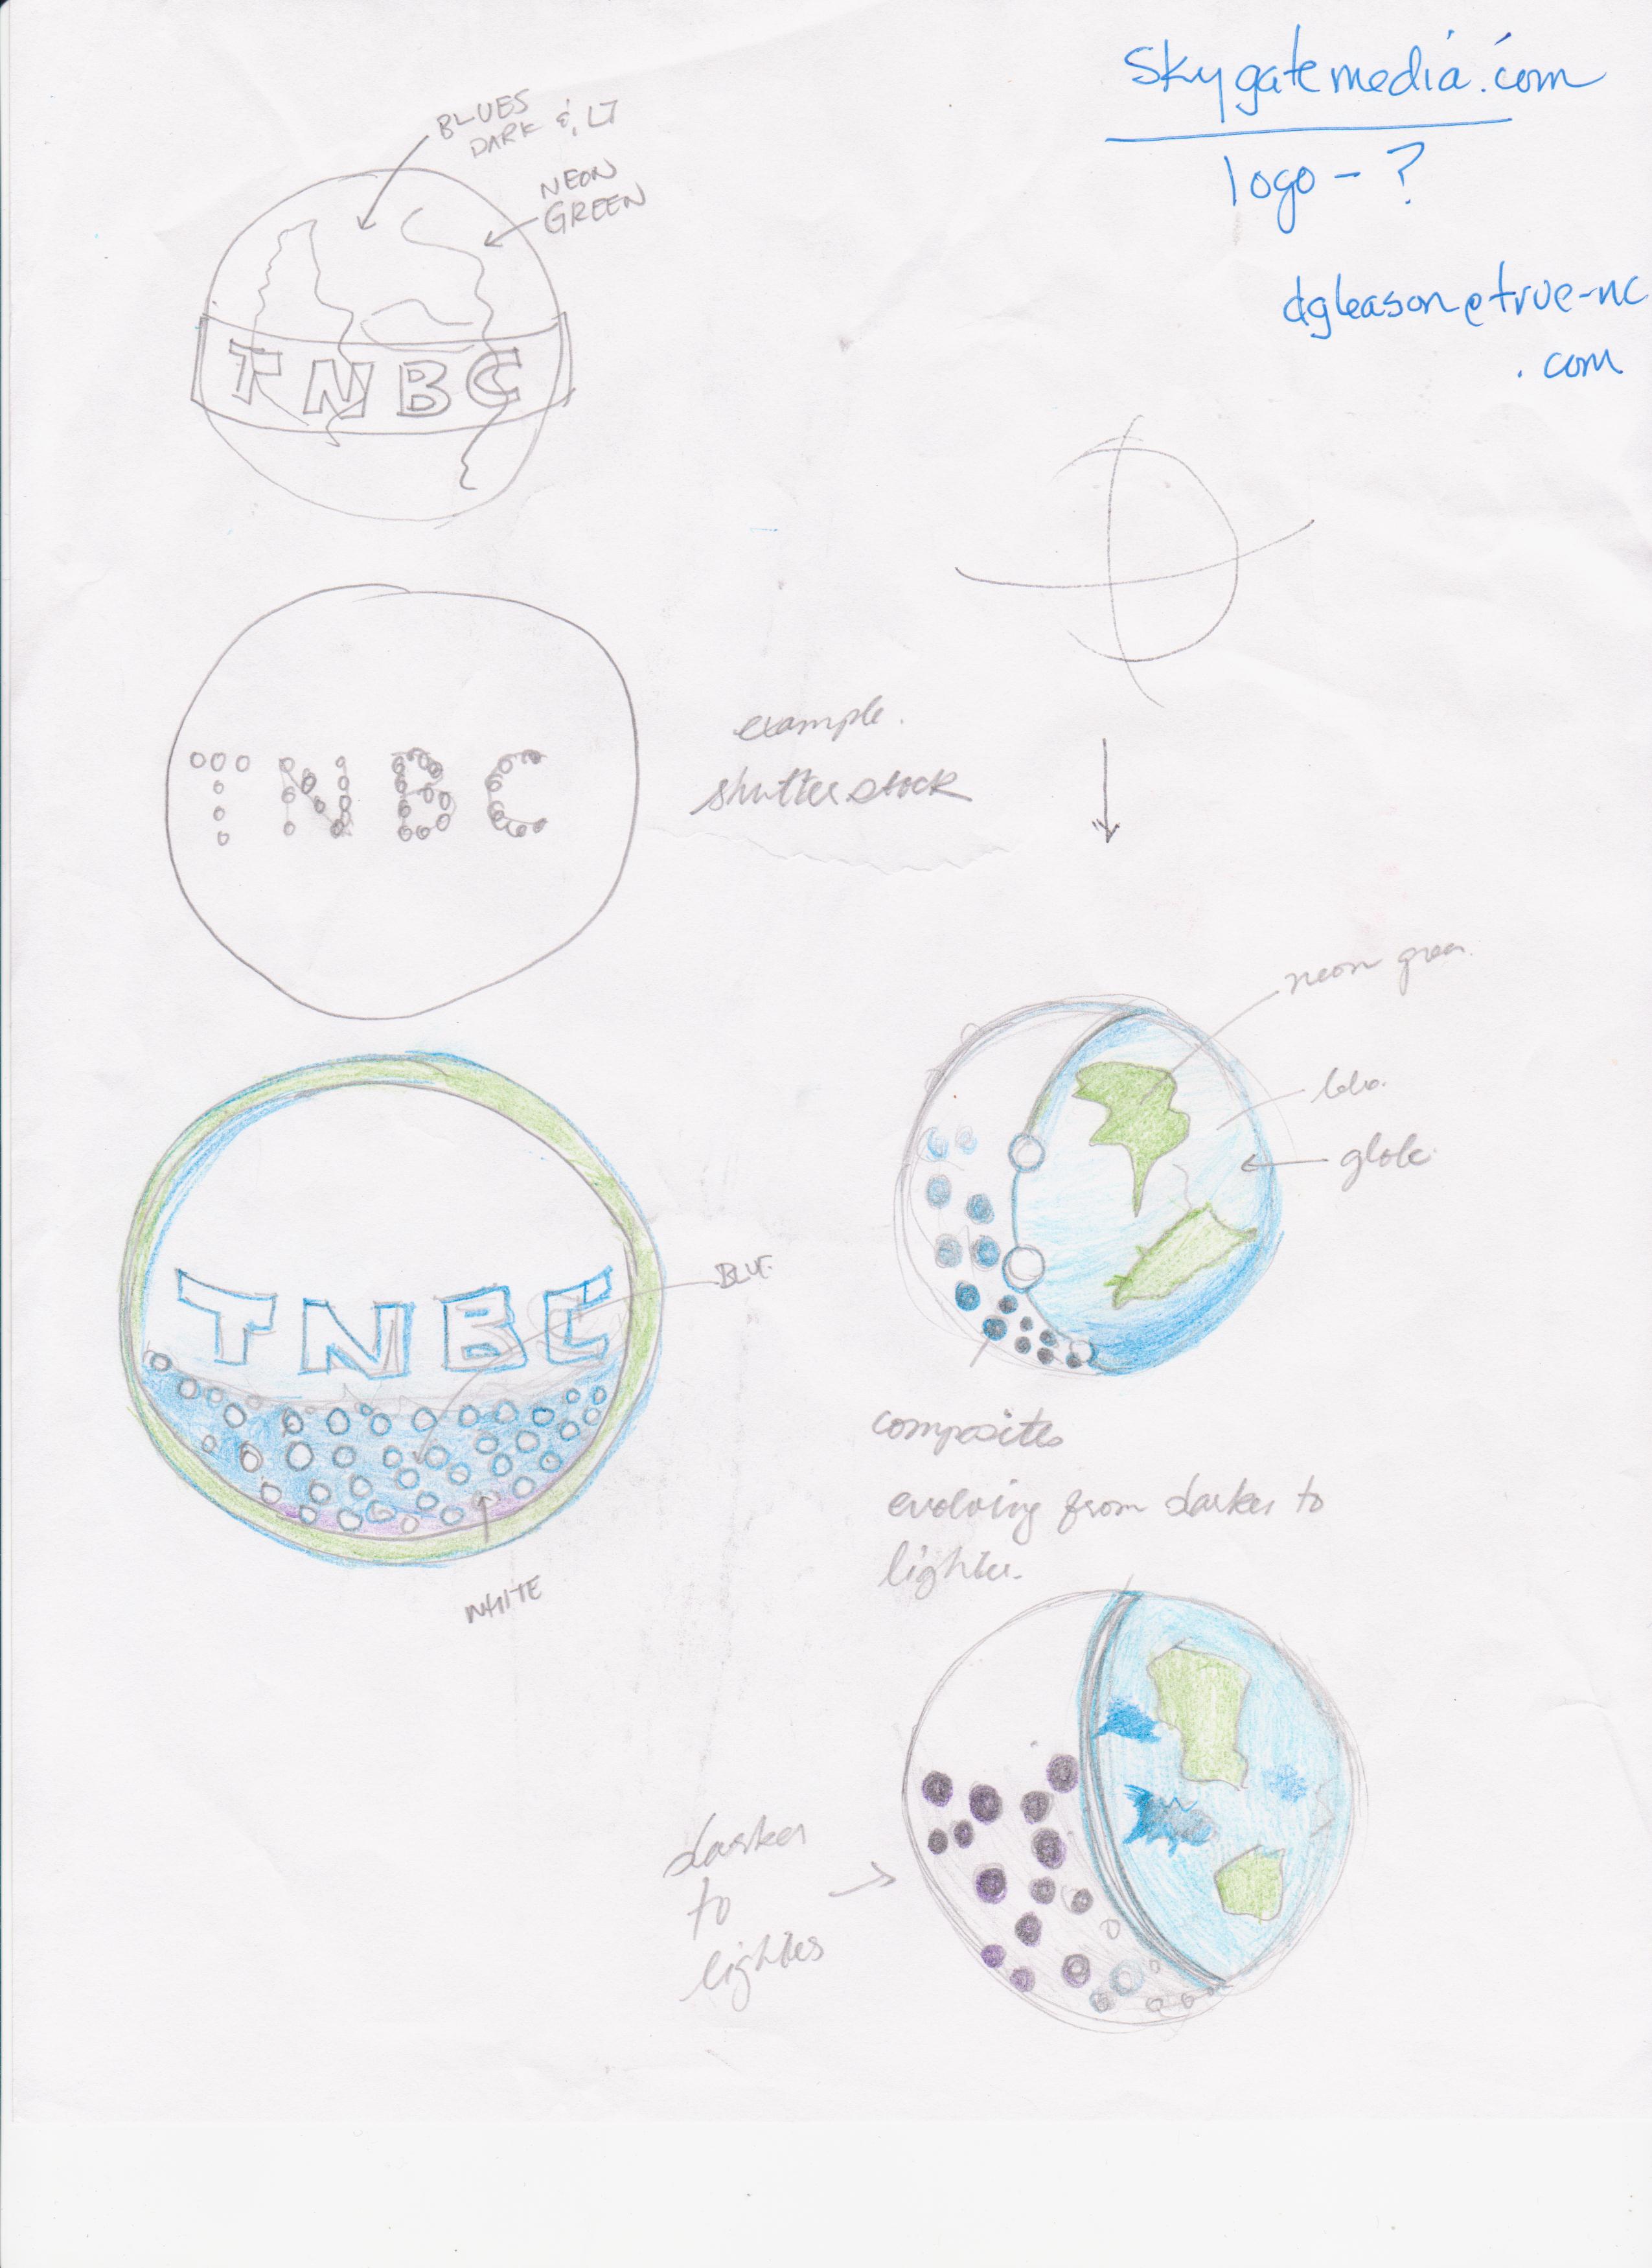 skygatemedia.com
logo - ?
dgleason@true-nc
.com
BLUES
DARK & LT
NEON
GREEN
TNBC
TNBC
example.
shutterstock
neon green
globe
TNBC
BLUE
WHITE
composites
evolving from darker to
lighter.
darker
to
lighter